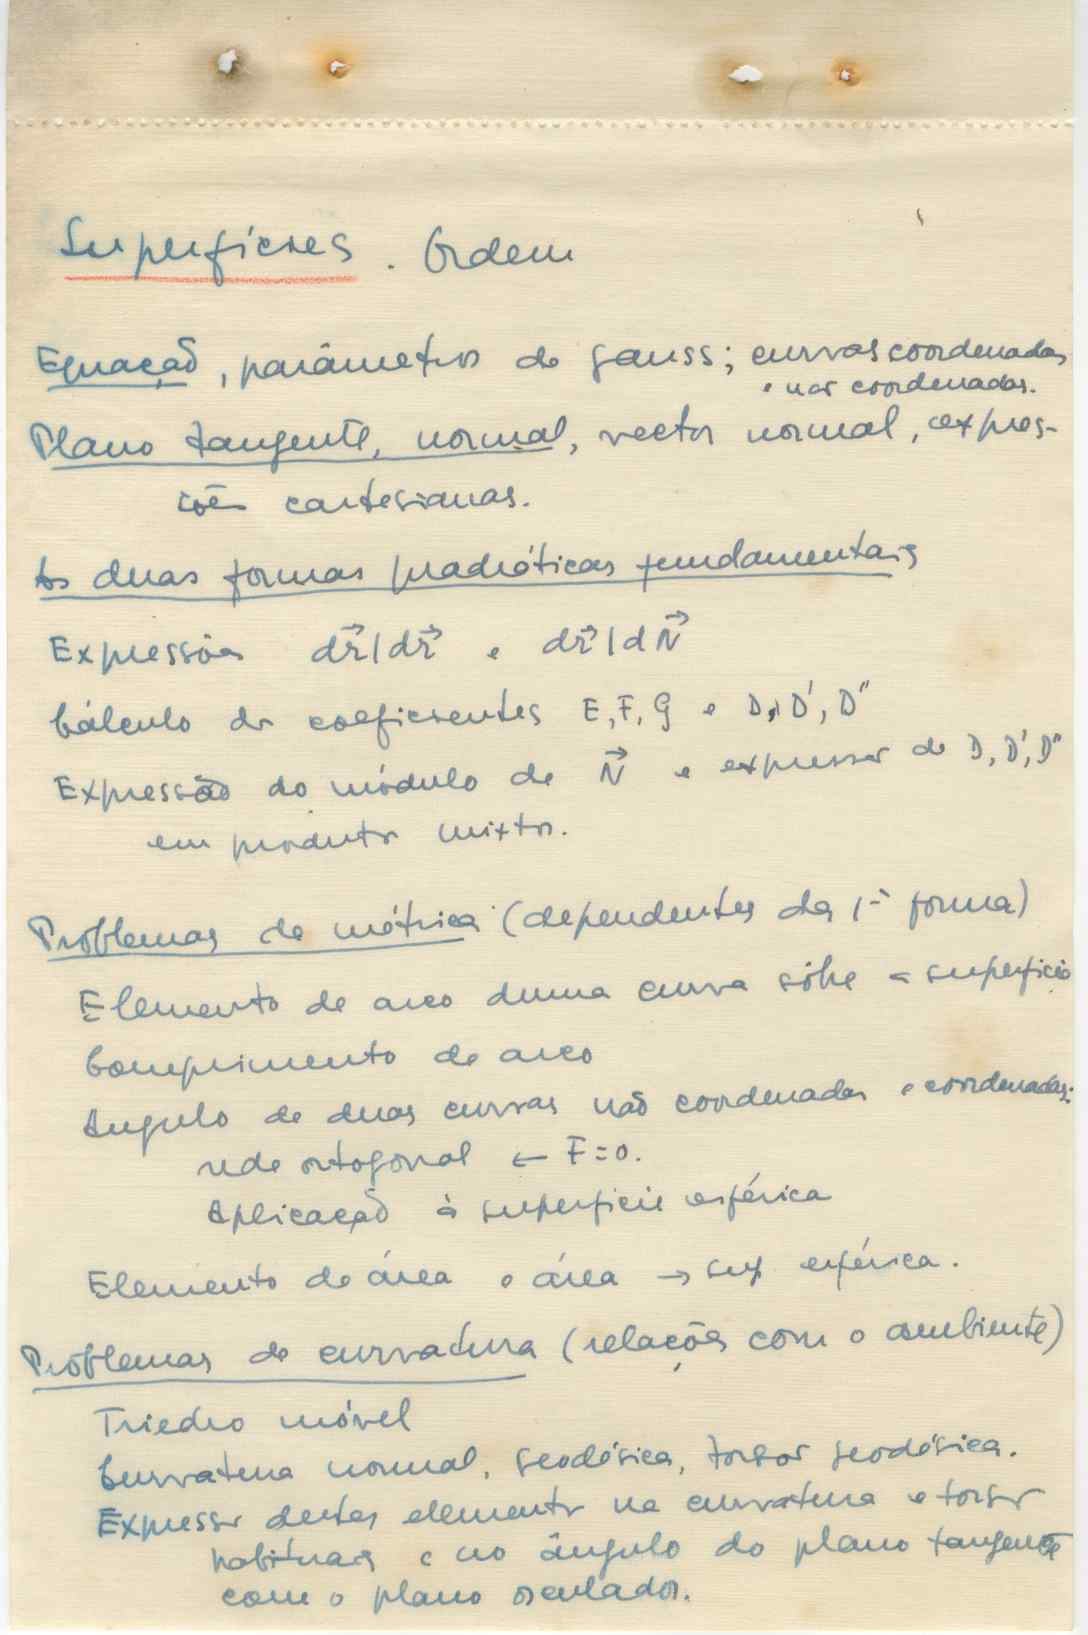 Superfícies. Ordem
Equação, parâmetros de Gauss; curvas coordenadas
e não coordenadas.
Plano tangente, normal, vector normal, expres-
sões cartesianas.
As duas formas quadráticas fundamentais
Expressões dr⃗|dr⃗ e dr⃗|dN⃗
Cálculo dos coeficientes E, F, G e D, D', D''
Expressão do módulo de N⃗ e expressão de D, D', D''
em produtos mixtos.
Problemas de métrica (dependentes da 1ª forma)
Elemento de arco duma curva sôbre a superfície
Comprimento de arco
Ângulo de duas curvas não coordenadas e coordenadas;
rede ortogonal ← F=0.
Aplicação à superfície esférica
Elemento de área e área → sup esférica.
Problemas de curvatura (relações com o ambiente)
Triedro móvel
Curvatura normal, geodésica, torsão geodésica.
Expressão destes elementos na curvatura e torsão
habituais e no ângulo do plano tangente
com o plano osculador.